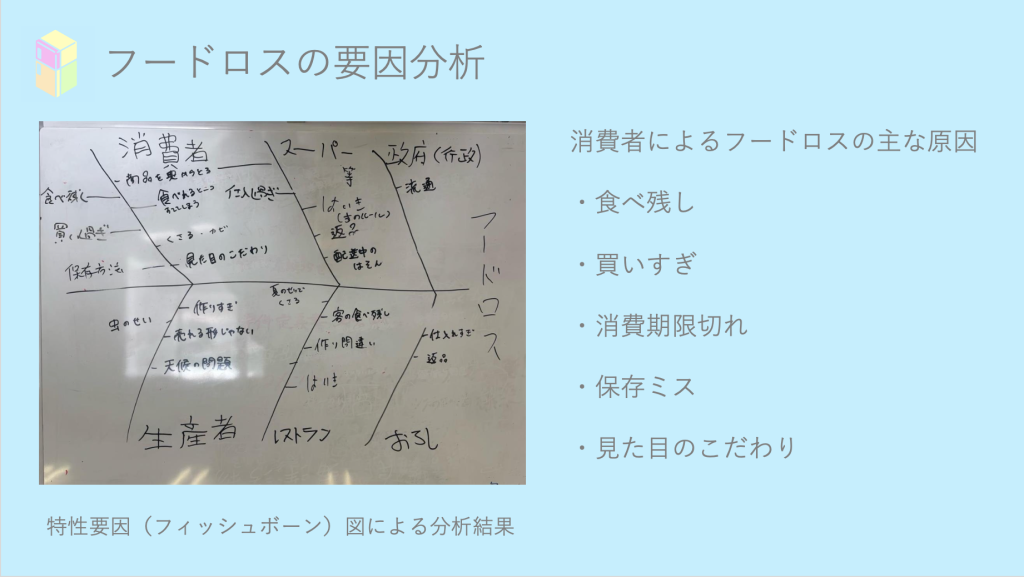 フードロスの要因分析
消費者
スーパー
等
政府(行政)
食べ残し
買い過ぎ
保存方法
くさる・カビ
見た目のこだわり
仕入し過ぎ
はいき
返品
配送中の
はそん
流通
フードロス
虫のせい
作りすぎ
売れる形じゃない
天候の問題
客の食べ残し
作り間違い
はいき
仕入れすぎ
返品
生産者
レストラン
おろし
特性要因（フィッシュボーン）図による分析結果
消費者によるフードロスの主な原因
・食べ残し
・買いすぎ
・消費期限切れ
・保存ミス
・見た目のこだわり